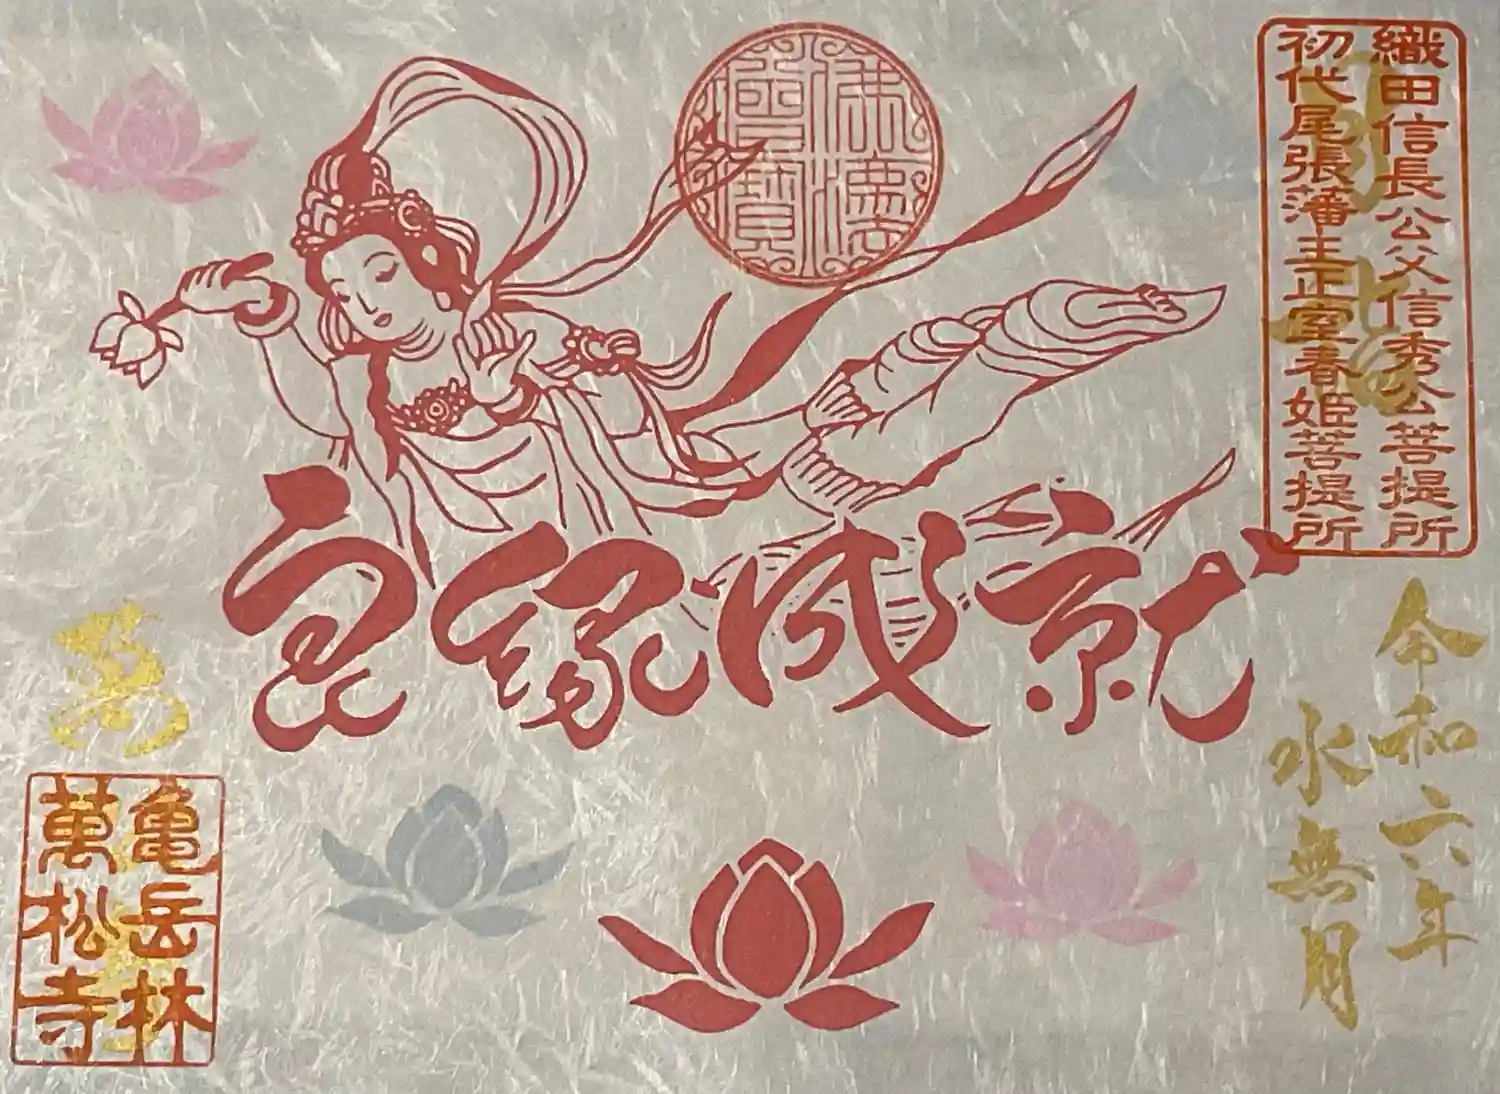 織田信長公父信秀公菩提所
初代尾張藩主正室春姫菩提所
奉拝
佛法僧寶
良縁成就
令和六年
水無月
萬松寺
亀岳林
萬松寺